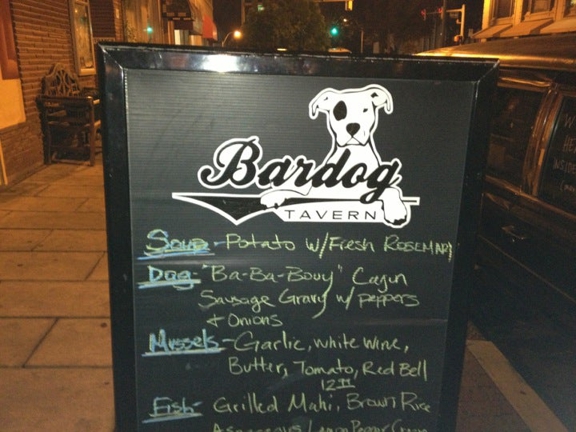 Bardog
TAVERN
Soup - Potato w/Fresh Rosemary
Dog - "Ba-Ba-Bouy" Cajun
Sausage Gravy w/ peppers
& Onions
Mussels - Garlic, white wine,
Butter, Tomato, Red Bell
12
Fish - Grilled Mahi, Brown Rice
Asparagus / Lemon Pepper Cream